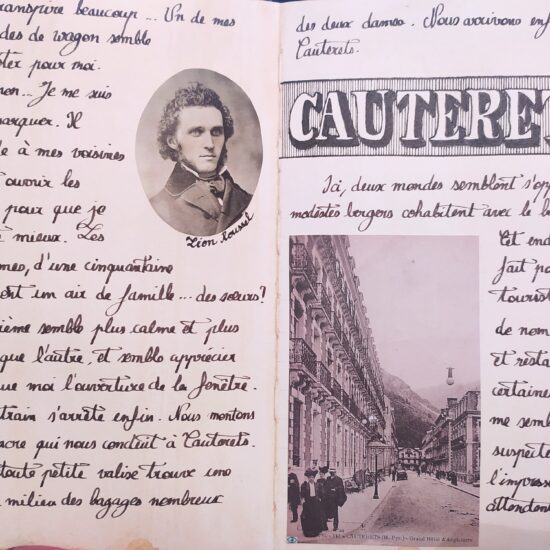 transpire beaucoup ... Un de mes
des de wagon semble
pour moi.
Je me suis
marquer. Il
à mes voisines
ouvrir les
pour que je
mieux. Les
mes, d'une cinquantaine
ent un air de famille ... des sœurs?
ième semble plus calme et plus
que l'autre, et semble apprécier
que moi l'ouverture de la fenêtre.
train s'arrête enfin. Nous montons
acre qui nous conduit à Cauterets.
toute petite valise trouve une
milieu des bagages nombreux
Léon Roussel
des deux dames. Nous arrivons enf
Cauterets.
CAUTERE
Ici, deux mondes semblent s'opp
modestes bergers cohabitent avec le b
Cet end
fait pa
tourist
de nom
et resta
certaine
me semb
suspecte
l'impress
attendent
CAUTERETS (H. Pyr.) - Grand Hôtel d'Angleterre